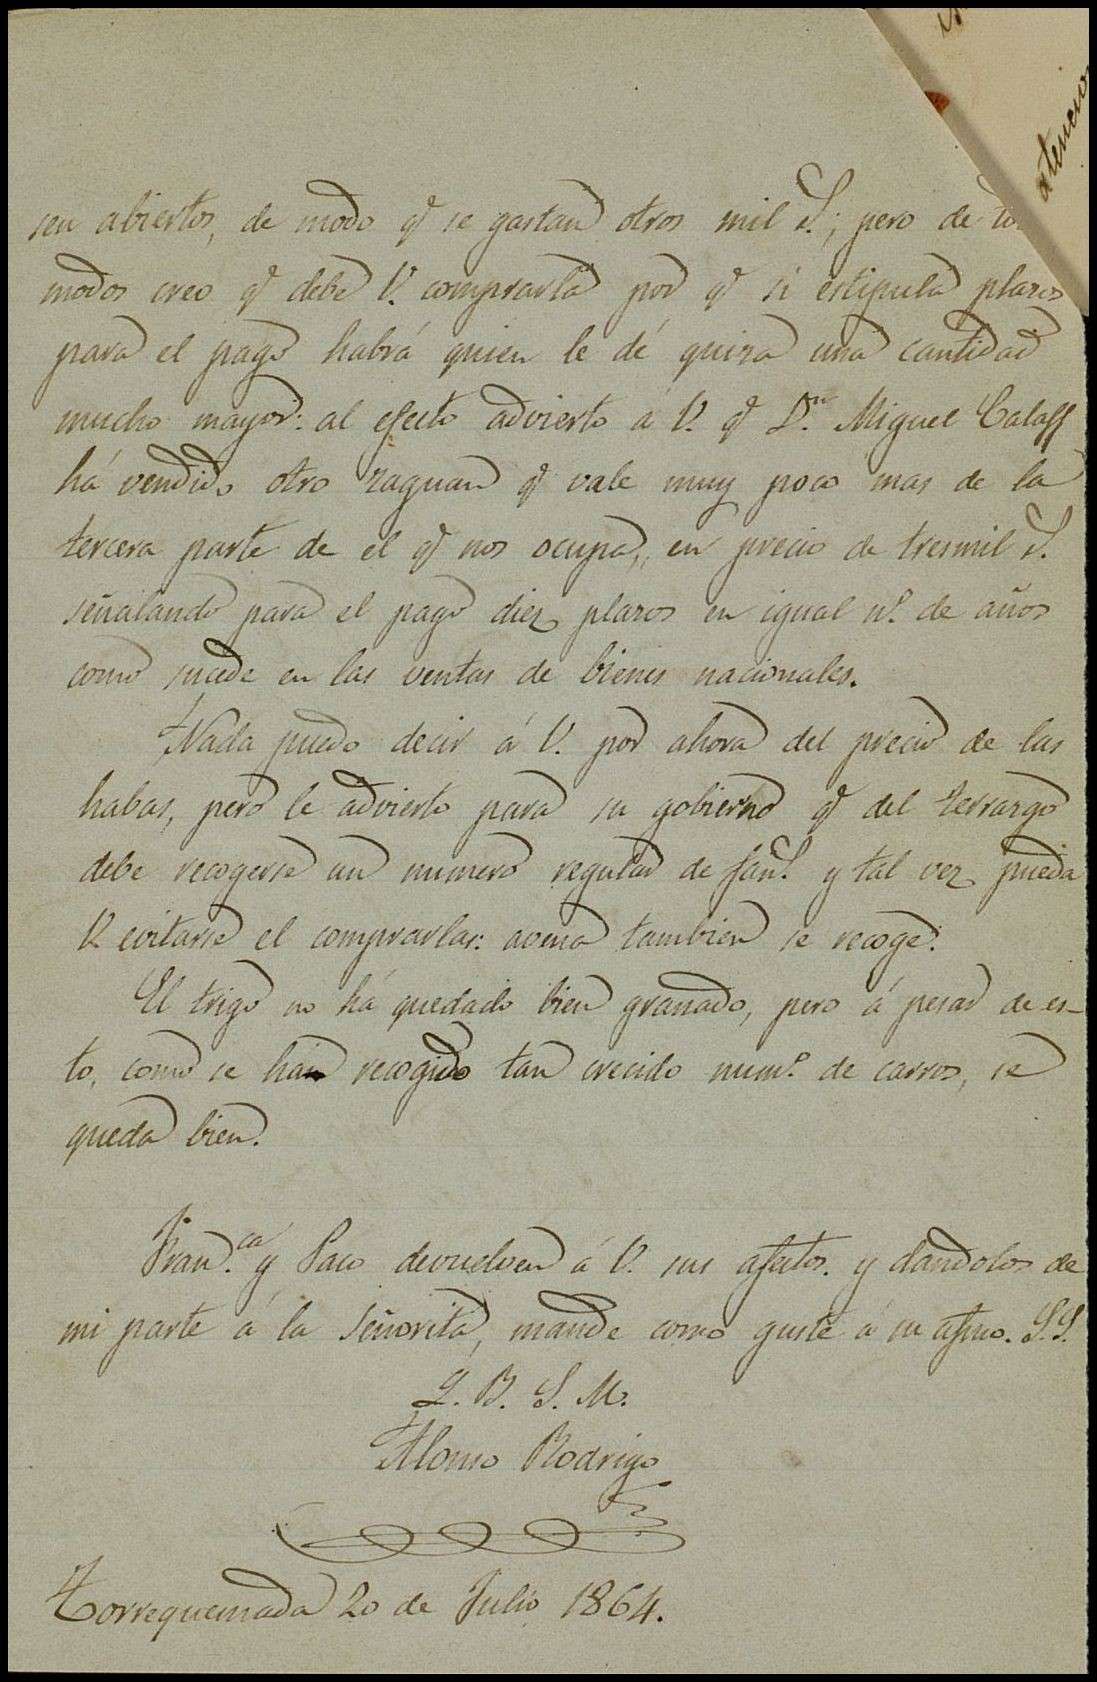 atencion
sen abiertos, de modo q.e se gastan otros mil S.; pero de to
modos creo q.e debe V. comprarla por q.e si estipula plazos
para el pago habrá quien le dé quiza una cantidad
mucho mayor: al efecto advierto á V. q.e D.n Miguel Calaff
há vendido otro zaguan q.e vale muy poco mas de la
tercera parte de el q.e nos ocupa, en precio de tresmil S.
señalando para el pago diez plazos en igual n.o de años
como sucede en las ventas de bienes nacionales.
Nada puedo decir á V. por ahora del precio de las
habas, pero le advierto para su gobierno q.e del terrazgo
debe recogerse un numero regular de fan.s y tal vez pueda
V. evitarse el comprarlas: avena tambien se recoge.
El trigo no há quedado bien granado, pero á pesar de es-
to, como se han recogido tan crecido num.o de carros, se
queda bien.
Fran.ca y Paco devuelven á V. sus afectos. y dandolos de
mi parte á la Señorita, mande como guste á su afmo. S.S.
Q. B. S. M.
Alonso Rodrigo
Torrequemada 20 de Julio 1864.